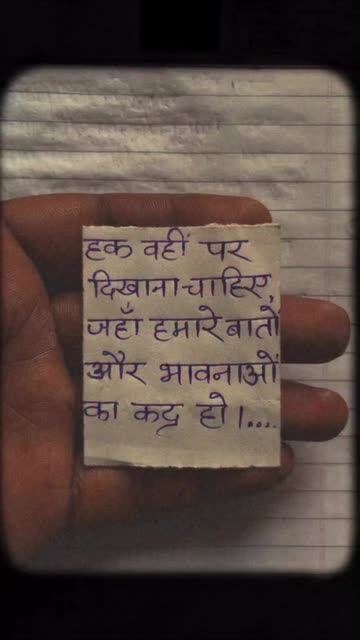 हक वहीं पर
दिखाना चाहिए,
जहाँ हमारे बातों
और भावनाओं
का कद्र हो।....